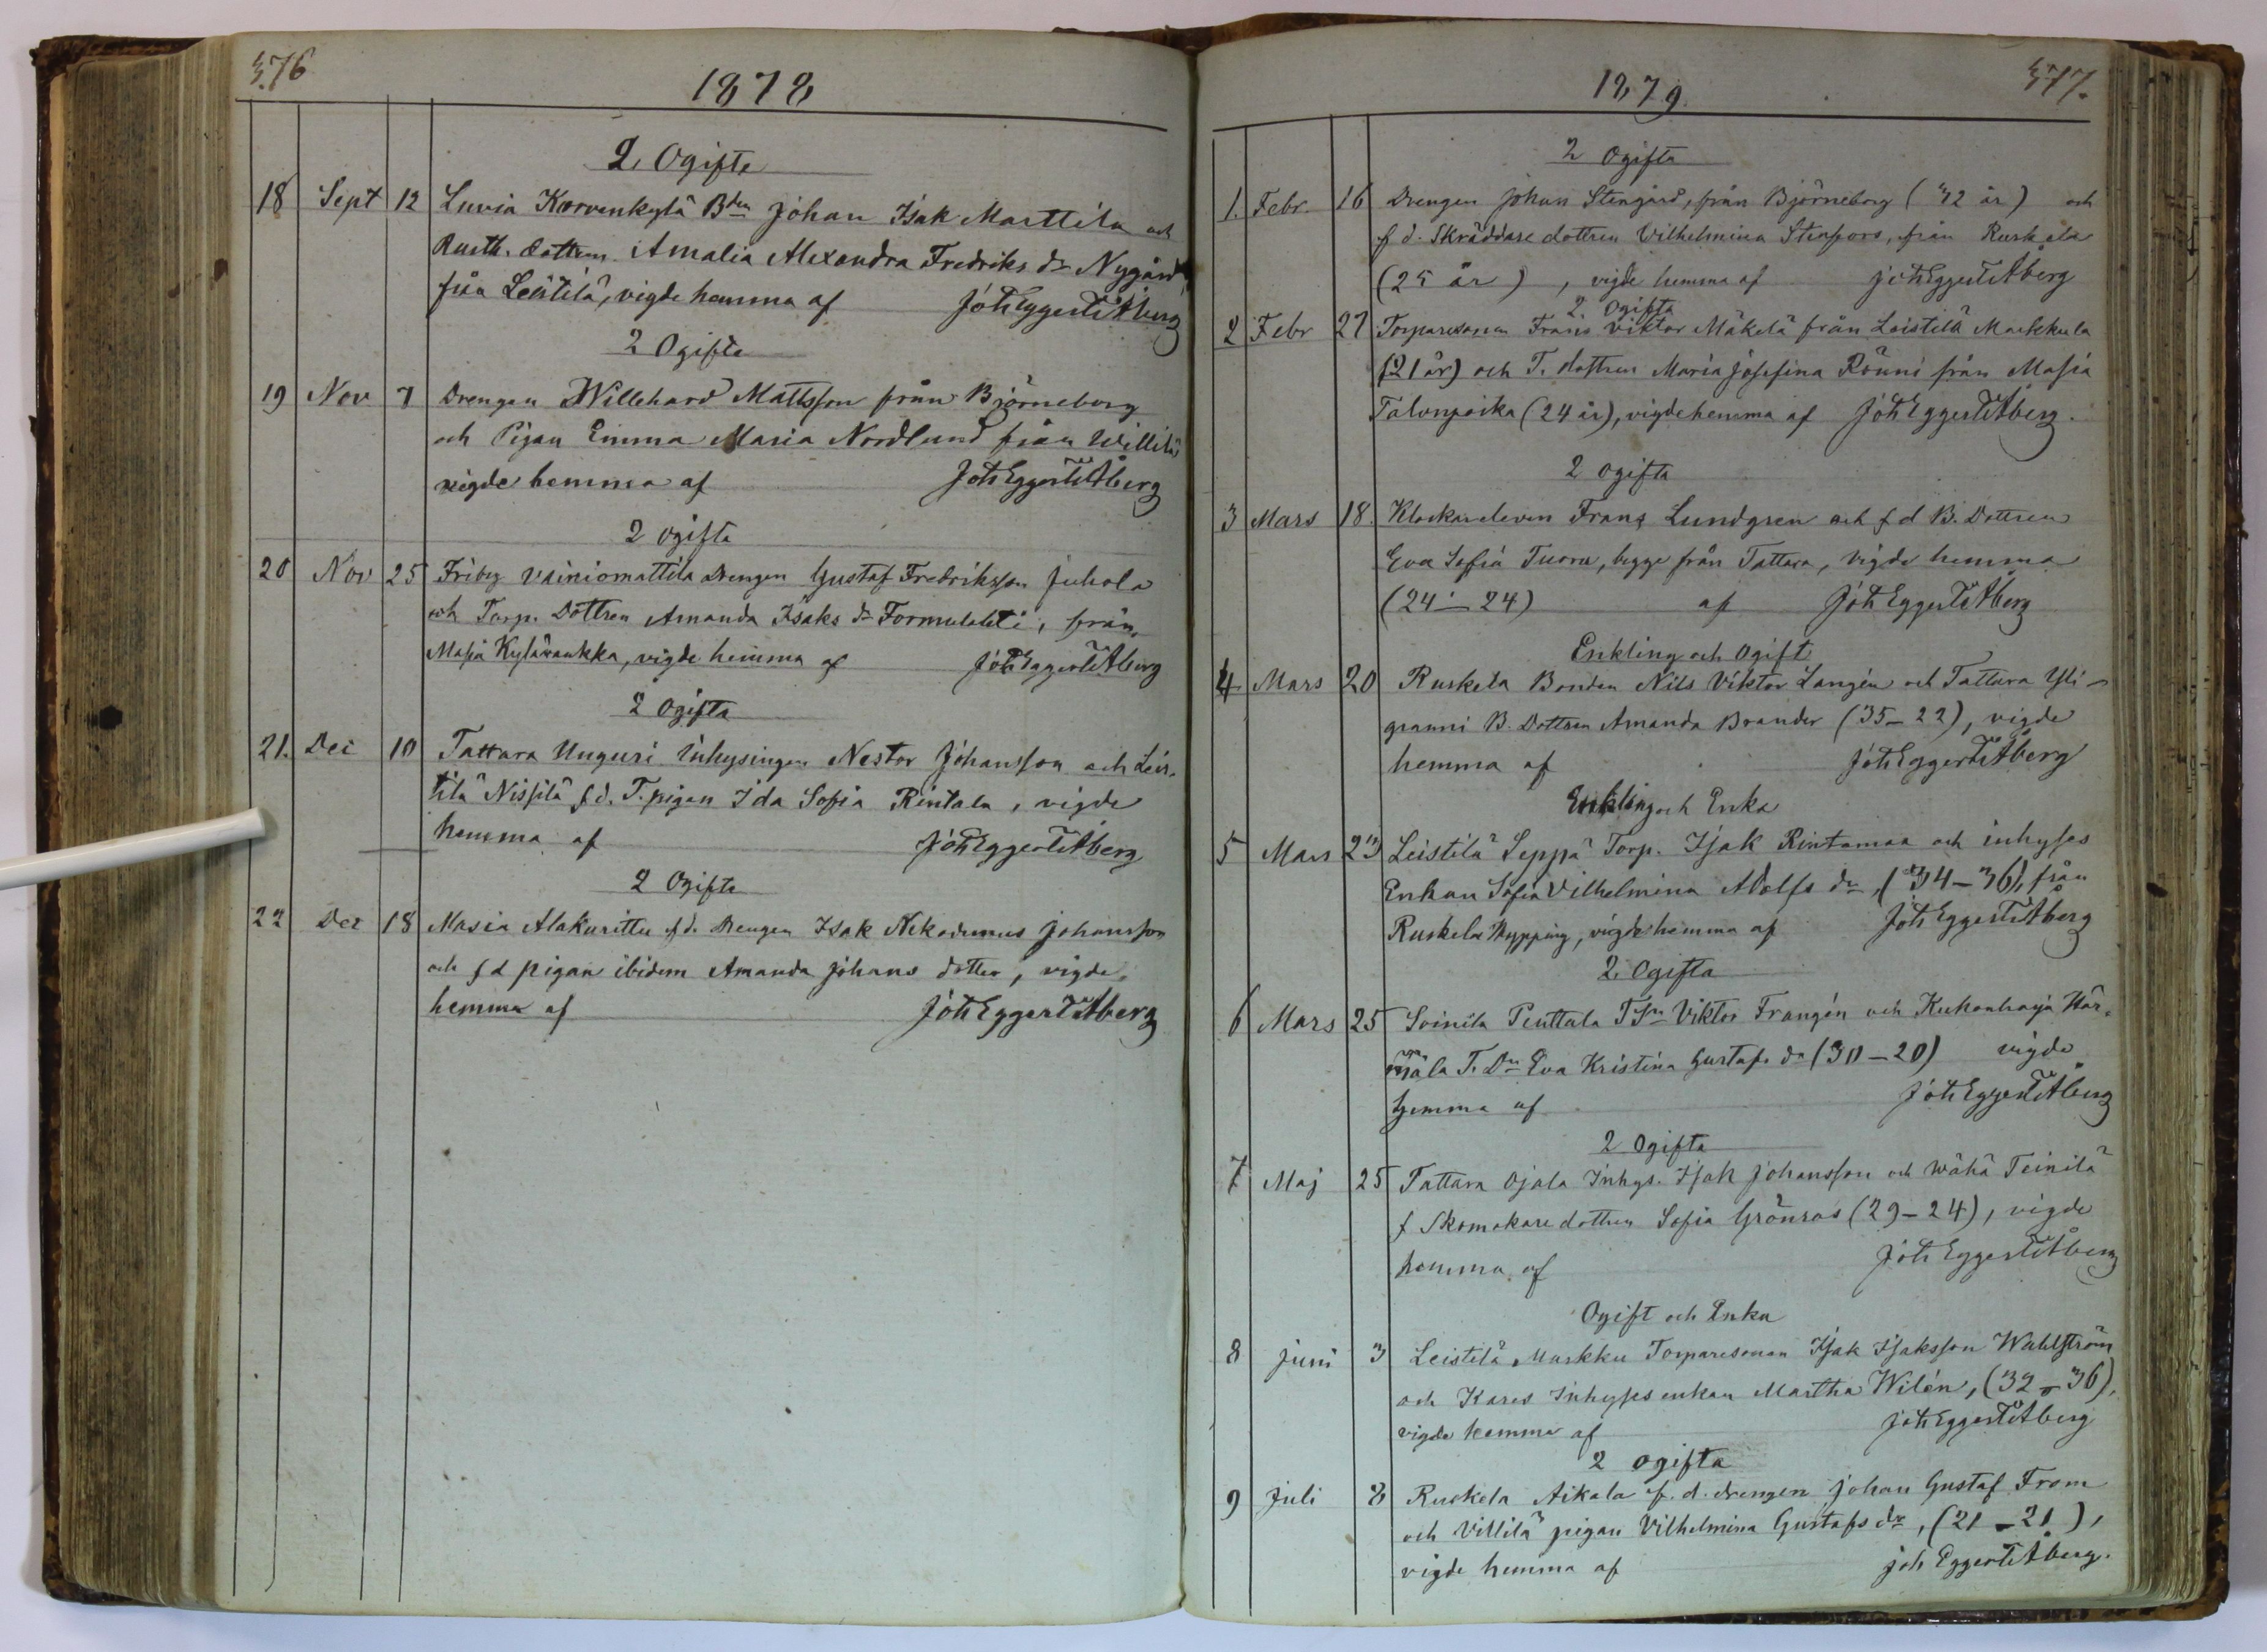 376
1878
2 Ogifte
18 Sept 12 Luvia Korvenkylä Bden Johan Isak Marttila och
Rusth. dottren Amalia Alexandra Fredriks dr Nygård,
från Leistilä, vigde hemma af Joh Eggert Åberg
2 Ogifte
19 Nov 7 Drengen Willehard Mattsson från Björneborg
och Pigan Emma Maria Nordlund från Willilä
vigde hemma af Joh Eggert Åberg
2 ogifta
20 Nov 25 Friby Vainiomattila Drengen Gustaf Fredriksson Juhola
och Torp. Dottren Amanda Isaks dr Formulahti, från
Masia Kylävaukka, vigde hemma af Joh Eggert Åberg
2 Ogifta
21. Dec 10 Tattara Unguri Inhysingen Nestor Johansson och Leis-
tilä Nissilä f.d. T. pigan Ida Sofia Rintala, vigde
hemma af Joh Eggert Åberg
2 Ogifte
22 Dec 18 Masia Alakurittu f.d. Drengen Isak Nikodemus Johansson
och f d pigan ibidem Amanda Johans dotter, vigde
hemma af Joh Eggert Åberg
1879.
377.
2 Ogifta
1. Febr. 16 Drengen Johan Stengård, från Björneborg (42 år) och
f d. Skräddare dottren Vilhelmina Stenfors, från Ruskela
(25 år), vigde hemma af Joh Eggert Åberg
2 Ogifta
2 Febr 27 Torparesonen Frans Viktor Mäkelä från Leistilä Markkula
(21 år) och T. dottren Maria Josefina Rönni från Masia
Talonpoika (24 år), vigde hemma af Joh Eggert Åberg.
2 ogifta
3 Mars 18. Klockareleven Frans Lundgren och f d B. Dottren
Eva Sofia Tuoru, begge från Tattara, vigde hemma
(24 – 24) af Joh Eggert Åberg
Enkling och Ogift
4 Mars 20 Ruskela Bonden Nils Viktor Langén och Tattara Yli-
pranni B. Dottren Amanda Brander (35–22), vigde
hemma af Joh Eggert Åberg
Enkling och Enka
5 Mars 23 Leistilä Seppä Torp. Isak Rintamaa och inhyses
Enkan Sofia Vilhelmina Adolfs dr, (34–36), från
Ruskela Nypping, vigde hemma af Joh Eggert Åberg
2 Ogifta
6 Mars 25 Soinila Penttala TSn Viktor Frangén och Kukonharja Här-
mälä T. Dn Eva Kristina Gustafs dr (30–20) vigde
hemma af Joh Eggert Åberg
2 Ogifta
7 Maj 25 Tattara Ojala Inhys. Isak Johansson och Wähä Teinilä
f Skomakare dottren Sofia Grönroos (29–24), vigde
hemma af Joh Eggert Åberg
Ogift och Enka
8 Juni 3 Leistilä Markku Torparesonen Isak Isaksson Wahlström
och Kares Inhyses enkan Martha Wilén, (32–36),
vigde hemma af Joh Eggert Åberg
2 ogifta
9 Juli 8 Ruskela Aikala f. d. drengen Johan Gustaf From
och Villilä pigan Vilhelmina Gustafs dr, (21–21),
vigde hemma af Joh Eggert Åberg.